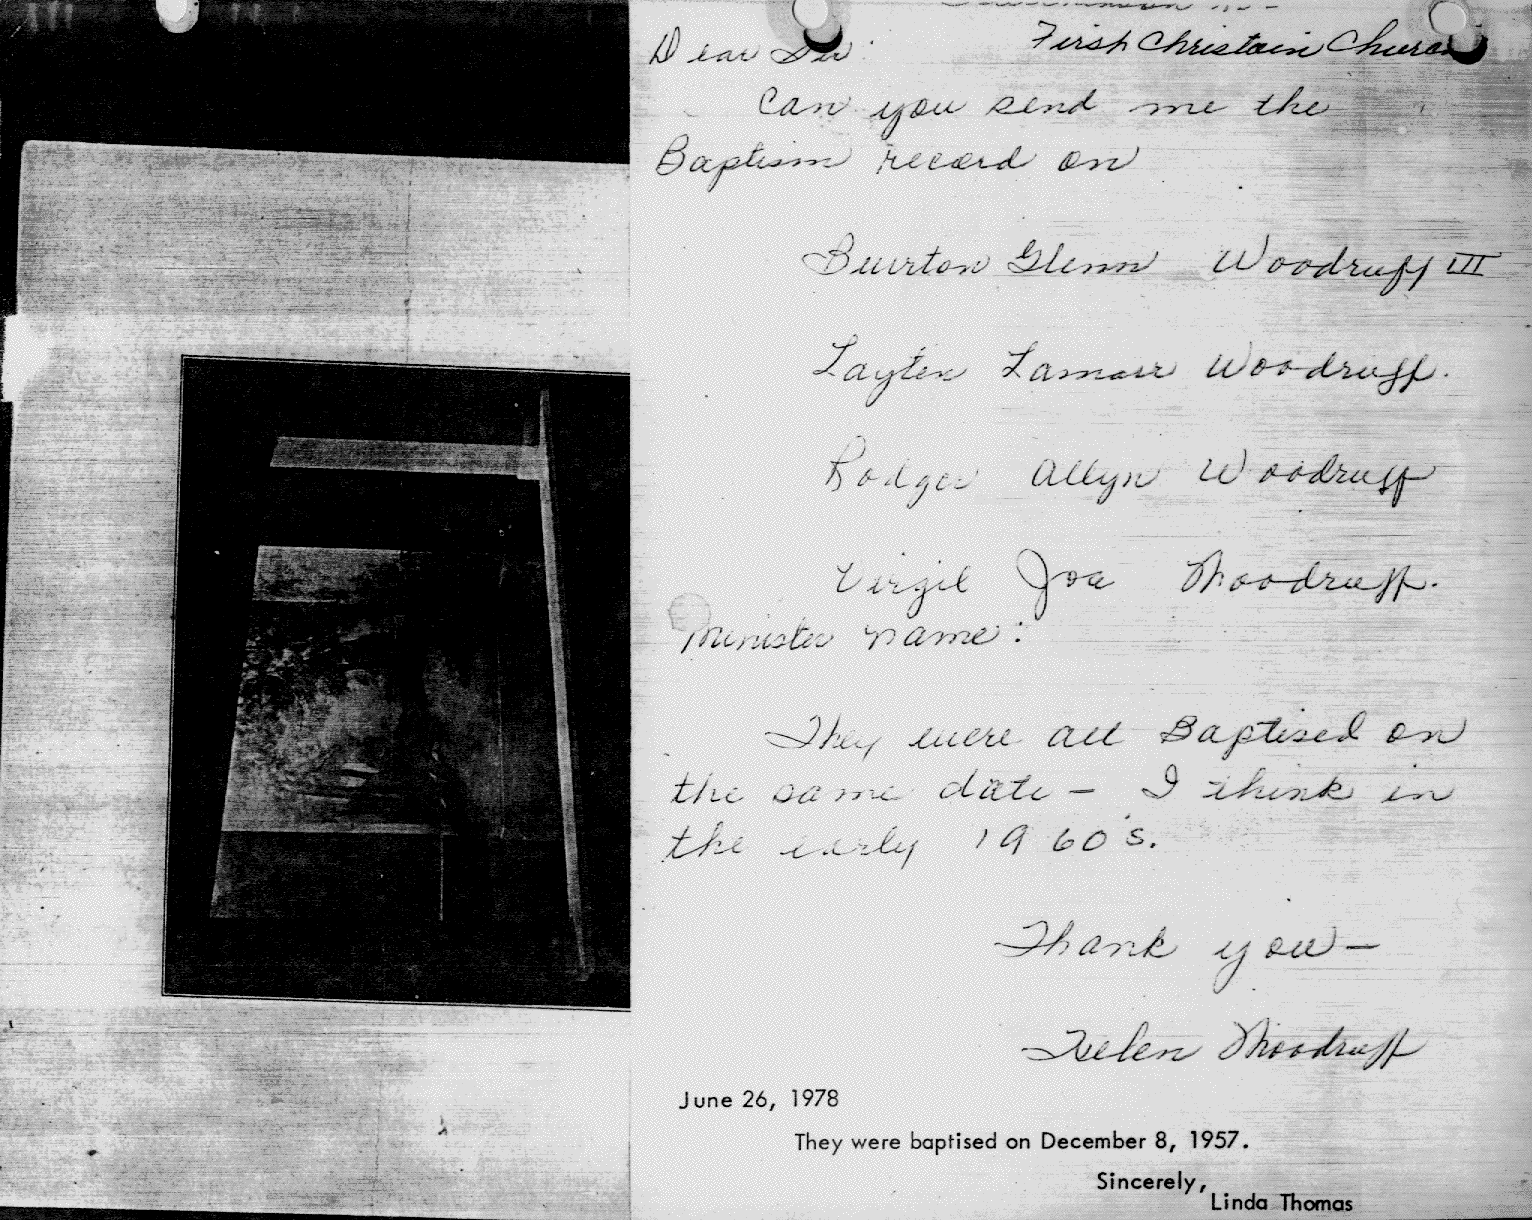 First Christain Church
Dear Sir:
Can you send me the
Baptism record on
Buirton Glenn Woodruff III
Layten Lamarr Woodruff.
Rodger Allyn Woodruff
Virgil Joe Woodruff.
Minister name:
They were all Baptised on
the same date – I think in
the early 1960's.
Thank you –
Helen Woodruff
June 26, 1978
They were baptised on December 8, 1957.
Sincerely,
Linda Thomas